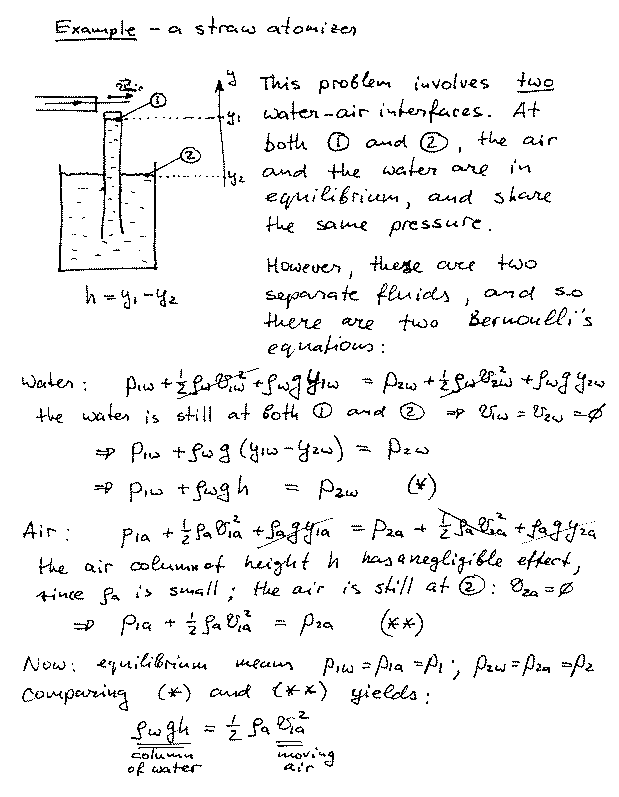 Example - a straw atomizer
v⃗air
①
②
y
y₁
y₂
h = y₁ - y₂
This problem involves two
water-air interfaces. At
both ① and ②, the air
and the water are in
equilibrium, and share
the same pressure.
However, these are two
separate fluids, and so
there are two Bernoulli's
equations:
Water: p₁w + ½ρwv₁w² + ρwgy₁w = p₂w + ½ρwv₂w² + ρwgy₂w
the water is still at both ① and ② ⇒ v₁w = v₂w = ∅
⇒ p₁w + ρwg(y₁w - y₂w) = p₂w
⇒ p₁w + ρwgh = p₂w (*)
Air: p₁a + ½ρav₁a² + ρagy₁a = p₂a + ½ρav₂a² + ρagy₂a
the air column of height h has a negligible effect,
since ρa is small; the air is still at ②: v₂a = ∅
⇒ p₁a + ½ρav₁a² = p₂a (**)
Now: equilibrium means p₁w = p₁a = p₁; p₂w = p₂a = p₂
Comparing (*) and (**) yields:
ρwgh = ½ρav₁a²
column of water
moving air